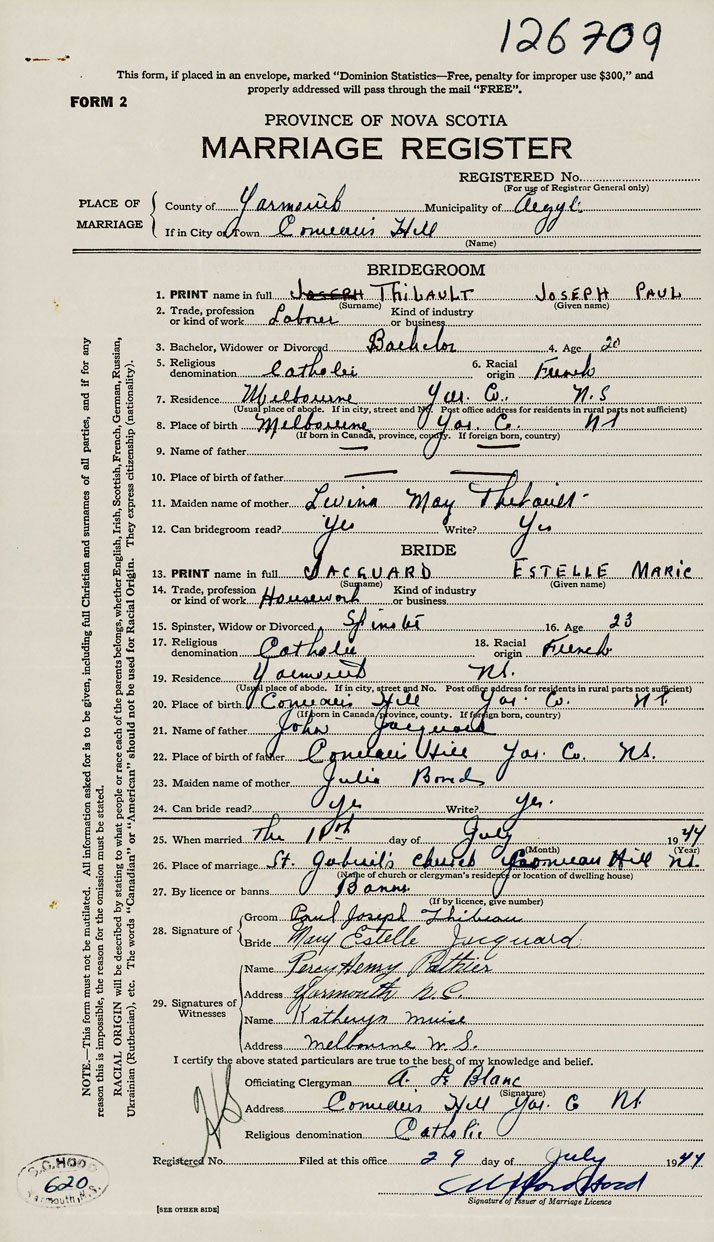 126709
This form, if placed in an envelope, marked "Dominion Statistics—Free, penalty for improper use $300," and
properly addressed will pass through the mail "FREE".
FORM 2
PROVINCE OF NOVA SCOTIA
MARRIAGE REGISTER
REGISTERED No.
(For use of Registrar General only)
PLACE OF MARRIAGE
County of Yarmouth Municipality of Argyle
If in City or Town Comeau's Hill
(Name)
BRIDEGROOM
1. PRINT name in full JOSEPH THIBAULT JOSEPH PAUL
(Surname) (Given name)
2. Trade, profession or kind of work Laborer Kind of industry or business
3. Bachelor, Widower or Divorced Bachelor 4. Age 20
5. Religious denomination Catholic 6. Racial origin French
7. Residence Melbourne Yar. Co. N.S
(Usual place of abode. If in city, street and No. Post office address for residents in rural parts not sufficient)
8. Place of birth Melbourne Yar. Co. NS
(If born in Canada, province, county. If foreign born, country)
9. Name of father — —
10. Place of birth of father — —
11. Maiden name of mother Levina May Thibault
12. Can bridegroom read? Yes Write? Yes
BRIDE
13. PRINT name in full JACQUARD ESTELLE MARIE
(Surname) (Given name)
14. Trade, profession or kind of work Housework Kind of industry or business
15. Spinster, Widow or Divorced Spinster 16. Age 23
17. Religious denomination Catholic 18. Racial origin French
19. Residence Yarmouth NS.
(Usual place of abode. If in city, street and No. Post office address for residents in rural parts not sufficient)
20. Place of birth Comeau's Hill Yar. Co. NS.
(If born in Canada province, county. If foreign born, country)
21. Name of father John Jacquard
22. Place of birth of father Comeau's Hill Yar. Co. NS.
23. Maiden name of mother Julia Bond
24. Can bride read? Yes Write? Yes.
25. When married The 18th day of July 1944
(Month) (Year)
26. Place of marriage St. Gabriel's Church Comeau Hill NS.
(Name of church or clergyman's residence or location of dwelling house)
27. By licence or banns Banns
(If by licence, give number)
28. Signature of
Groom Paul Joseph Thibeau
Bride Mary Estelle Jacquard
29. Signatures of Witnesses
Name Percy Henry Pothier
Address Yarmouth N.S.
Name Katheryn Muise
Address Melbourne N.S.
I certify the above stated particulars are true to the best of my knowledge and belief.
Officiating Clergyman A. Le Blanc
(Signature)
Address Comeau's Hill Yar. Co NS
Religious denomination Catholic
Registered No. Filed at this office 29 day of July 1944
Signature of Issuer of Marriage Licence
[SEE OTHER SIDE]
S.C. HOOD
620
Yarmouth, N.S.
NOTE.—This form must not be mutilated. All information asked for is to be given, including full Christian and surnames of all parties, and if for any
reason this is impossible, the reason for the omission must be stated.
RACIAL ORIGIN will be described by stating to what people or race each of the parents belongs, whether English, Irish, Scottish, French, German, Russian,
Ukrainian (Ruthenian), etc. The words "Canadian" or "American" should not be used for Racial Origin. They express citizenship (nationality).